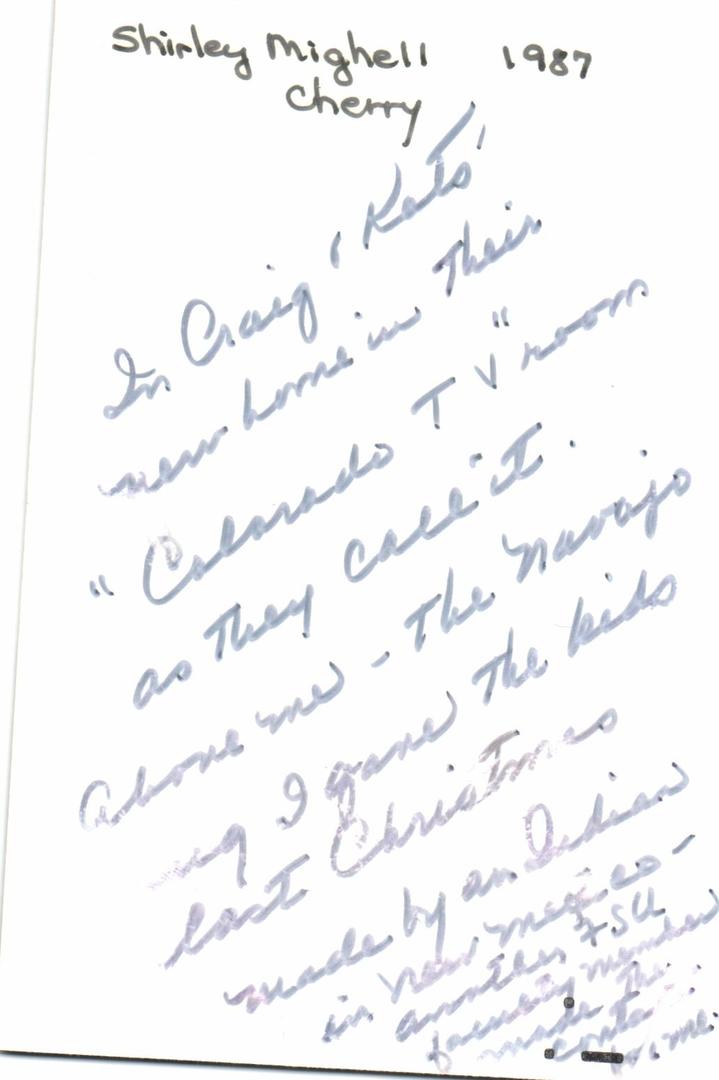 Shirley Mighell 1987
Cherry
In Craig, Kats'
new home in their
"Colorado TV" room
as they call it.
Above me - the Navajo
rug I gave the kids
last Christmas
made by an Indian
in New Mexico -
another FSU
faculty member
made the
for me.